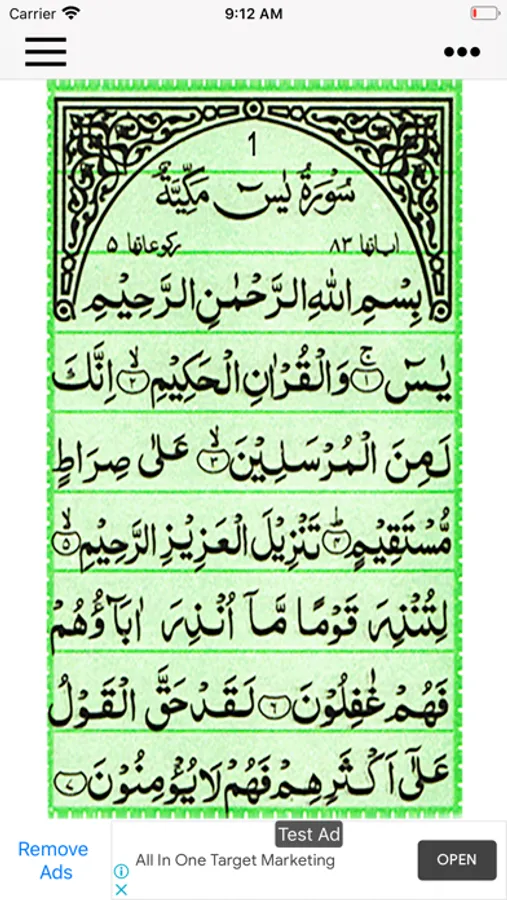 Carrier 9:12 AM
1
سُوْرَةُ يٰسٓ مَكِّيَّةٌ
اٰیاتها ٨٣ رکوعاتها ۵
بِسْمِ اللّٰهِ الرَّحْمٰنِ الرَّحِيْمِ
يٰسٓ ۚ﴿۱﴾ وَالْقُرْاٰنِ الْحَكِيْمِ ۙ﴿۲﴾ اِنَّكَ
لَمِنَ الْمُرْسَلِيْنَ ۙ﴿۳﴾ عَلٰى صِرَاطٍ
مُّسْتَقِيْمٍ ؕ﴿۴﴾ تَنْزِيْلَ الْعَزِيْزِ الرَّحِيْمِ ۙ﴿۵﴾
لِتُنْذِرَ قَوْمًا مَّاۤ اُنْذِرَ اٰبَآؤُهُمْ
فَهُمْ غٰفِلُوْنَ ﴿۶﴾ لَقَدْ حَقَّ الْقَوْلُ
عَلٰۤى اَكْثَرِهِمْ فَهُمْ لَا يُؤْمِنُوْنَ ﴿۷﴾
Remove Ads
Test Ad
All In One Target Marketing
OPEN